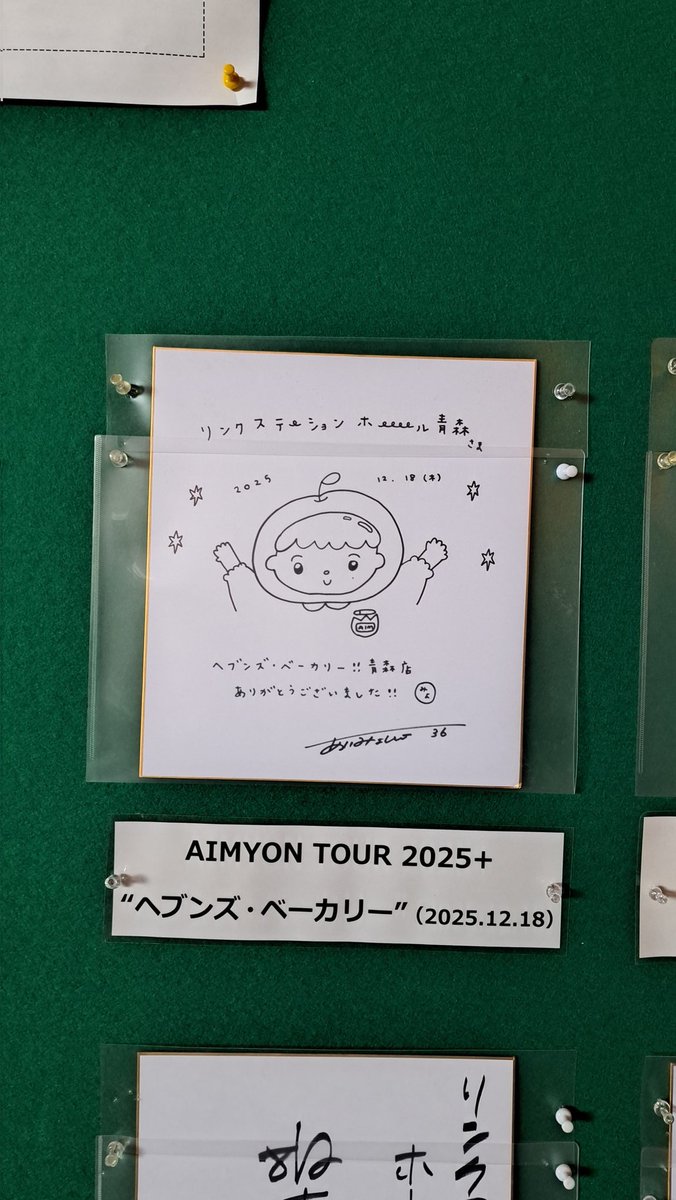 リンクステーションホーール青森
さま
2025 12.18(木)
AIM
ヘブンズ・ベーカリー!!青森店
ありがとうございました!!
みょ
36
AIMYON TOUR 2025+
“ヘブンズ・ベーカリー”(2025.12.18)
リンク
ホ